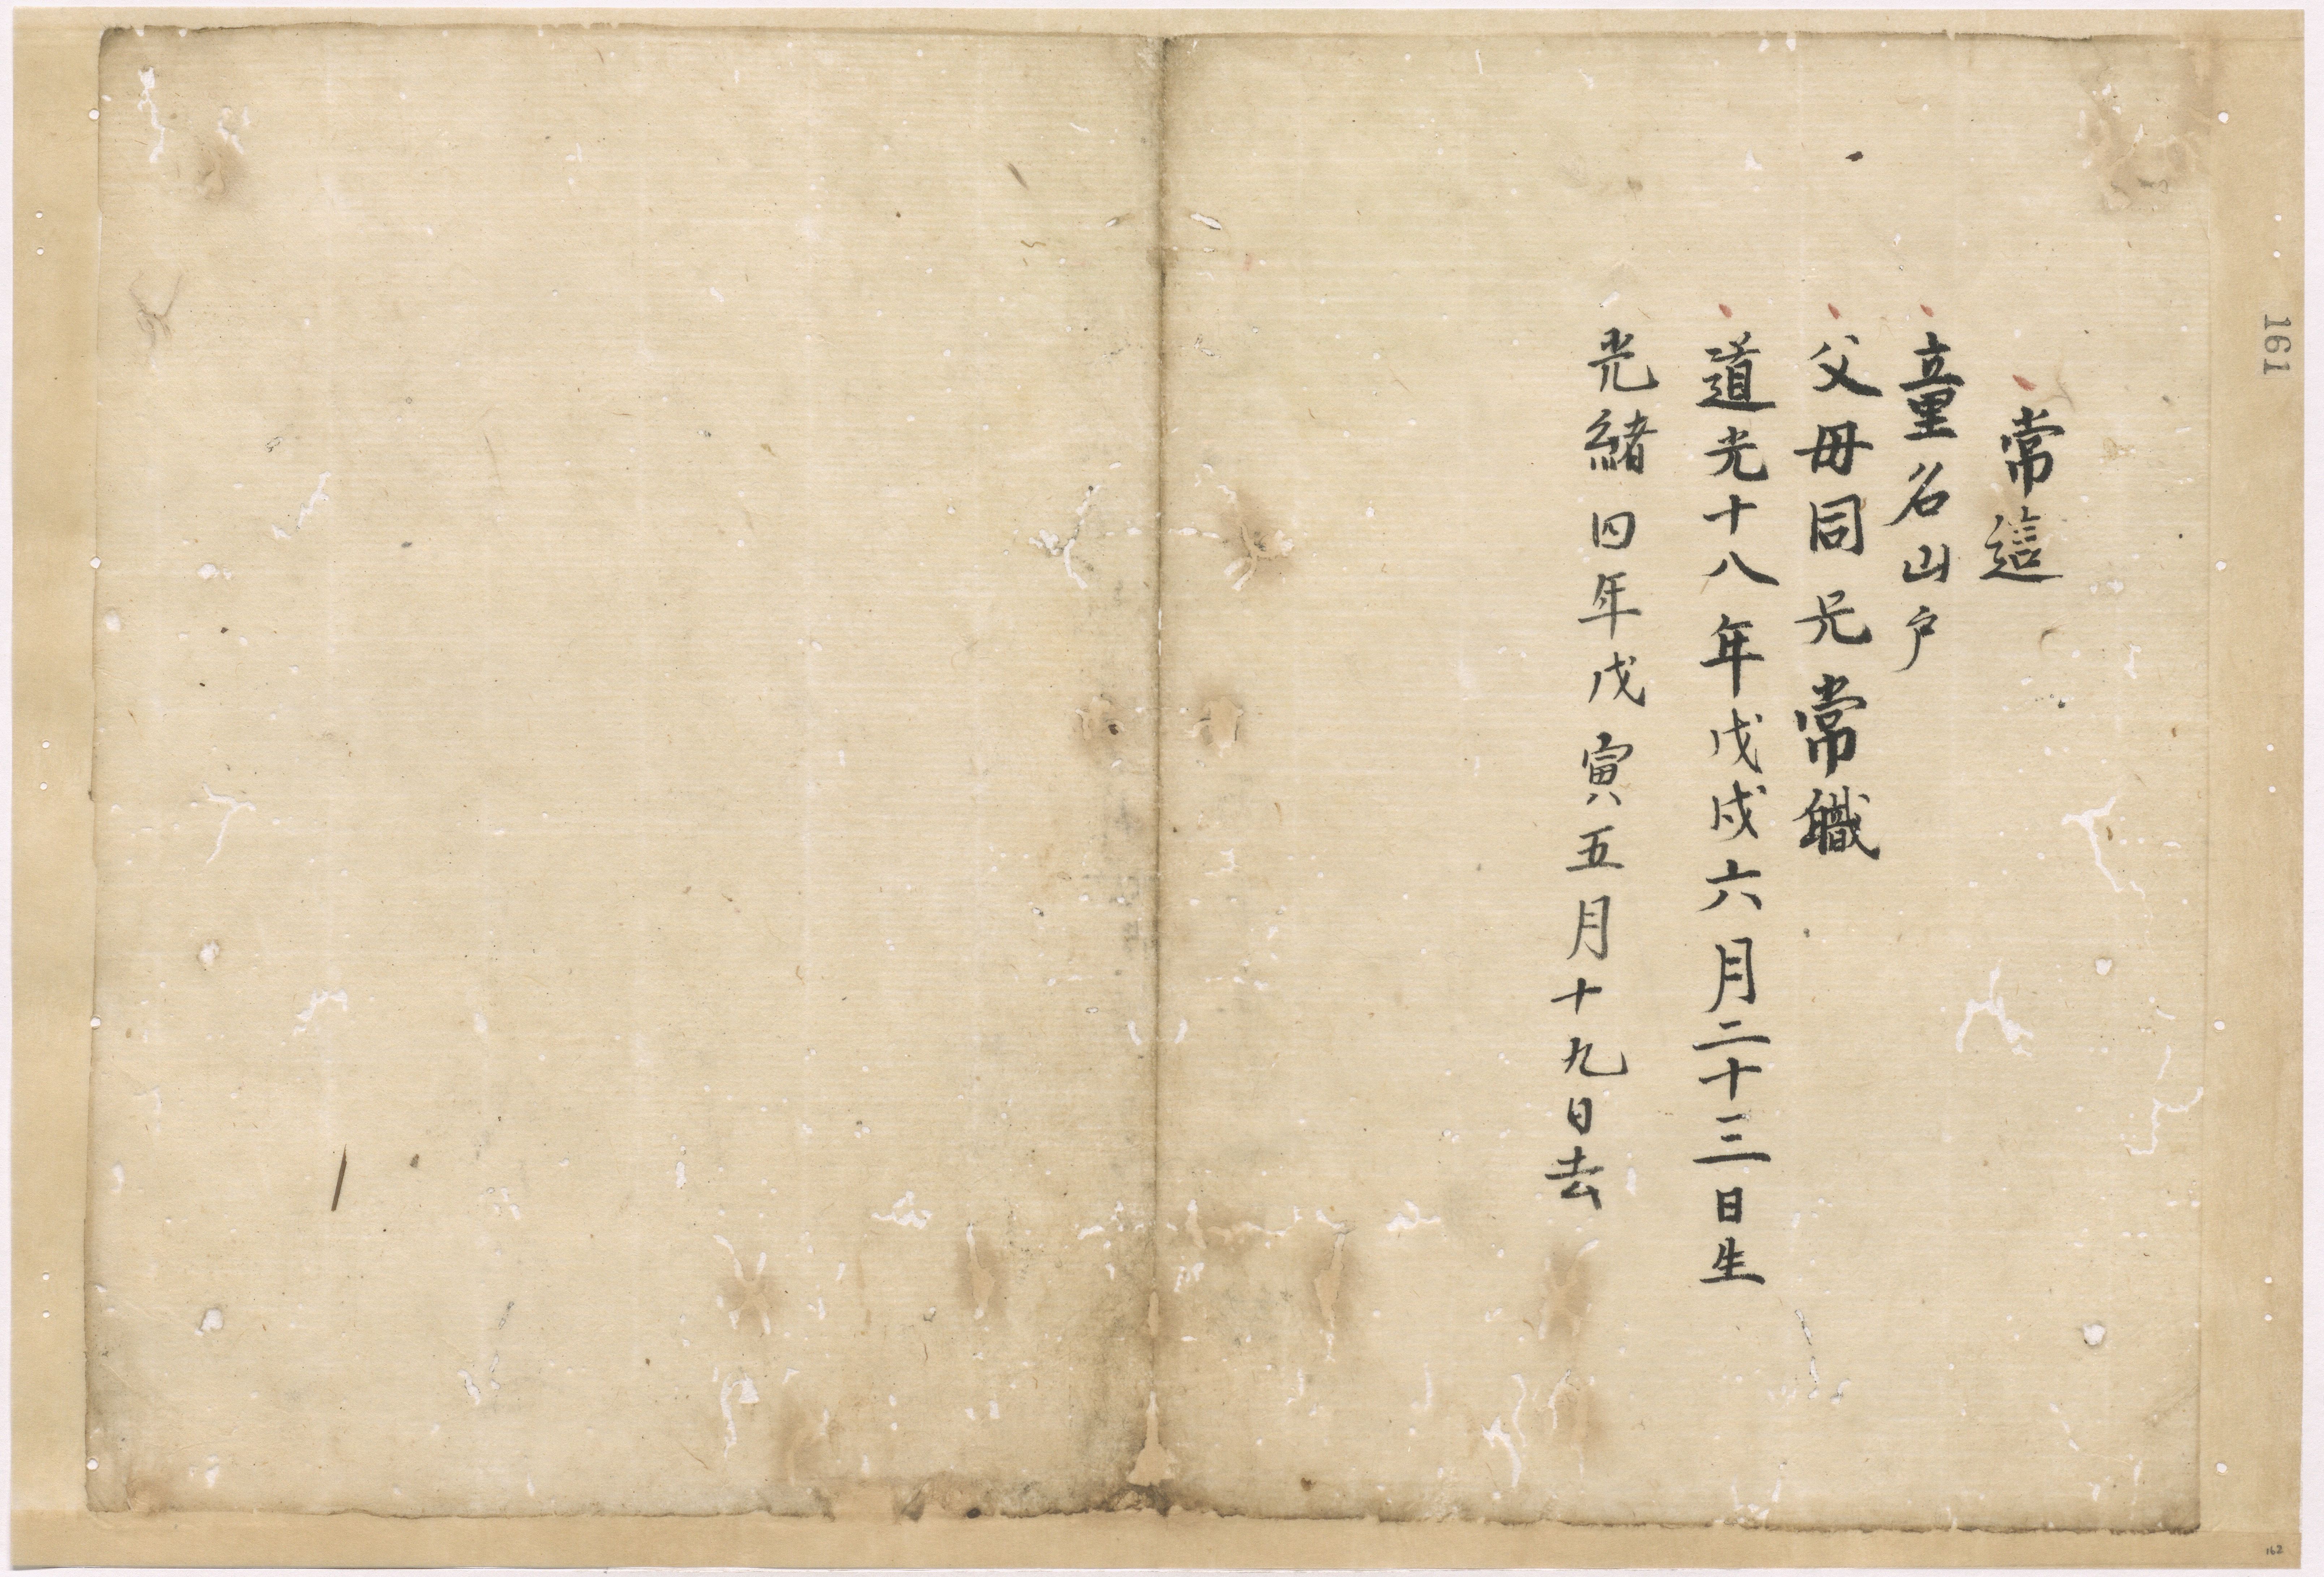 常這
童名山户
父毋同兄常職
道光十八年戊戌六月二十三日生
光緒四年戊寅五月十九日去
161
162